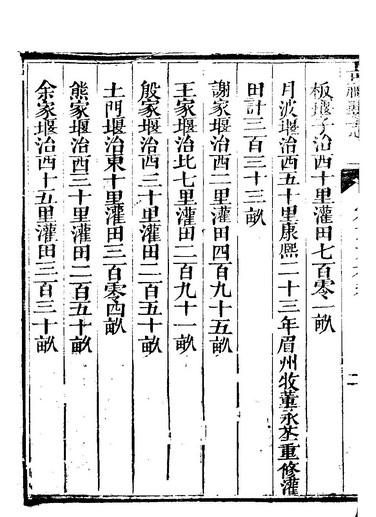 板堰子治西十里灌田七百零一畝
月波堰治西五十里康熙二十三年眉州牧董永荃重修灌
田計三百三十三畝
謝家堰治西二里灌田四百九十五畝
王家堰治北七里灌田二百九十一畝
殷家堰治西三十里灌田二百五十畝
土門堰治東十里灌田三百零四畝
熊家堰治西三十里灌田二百五十畝
余家堰治西十五里灌田三百三十畝